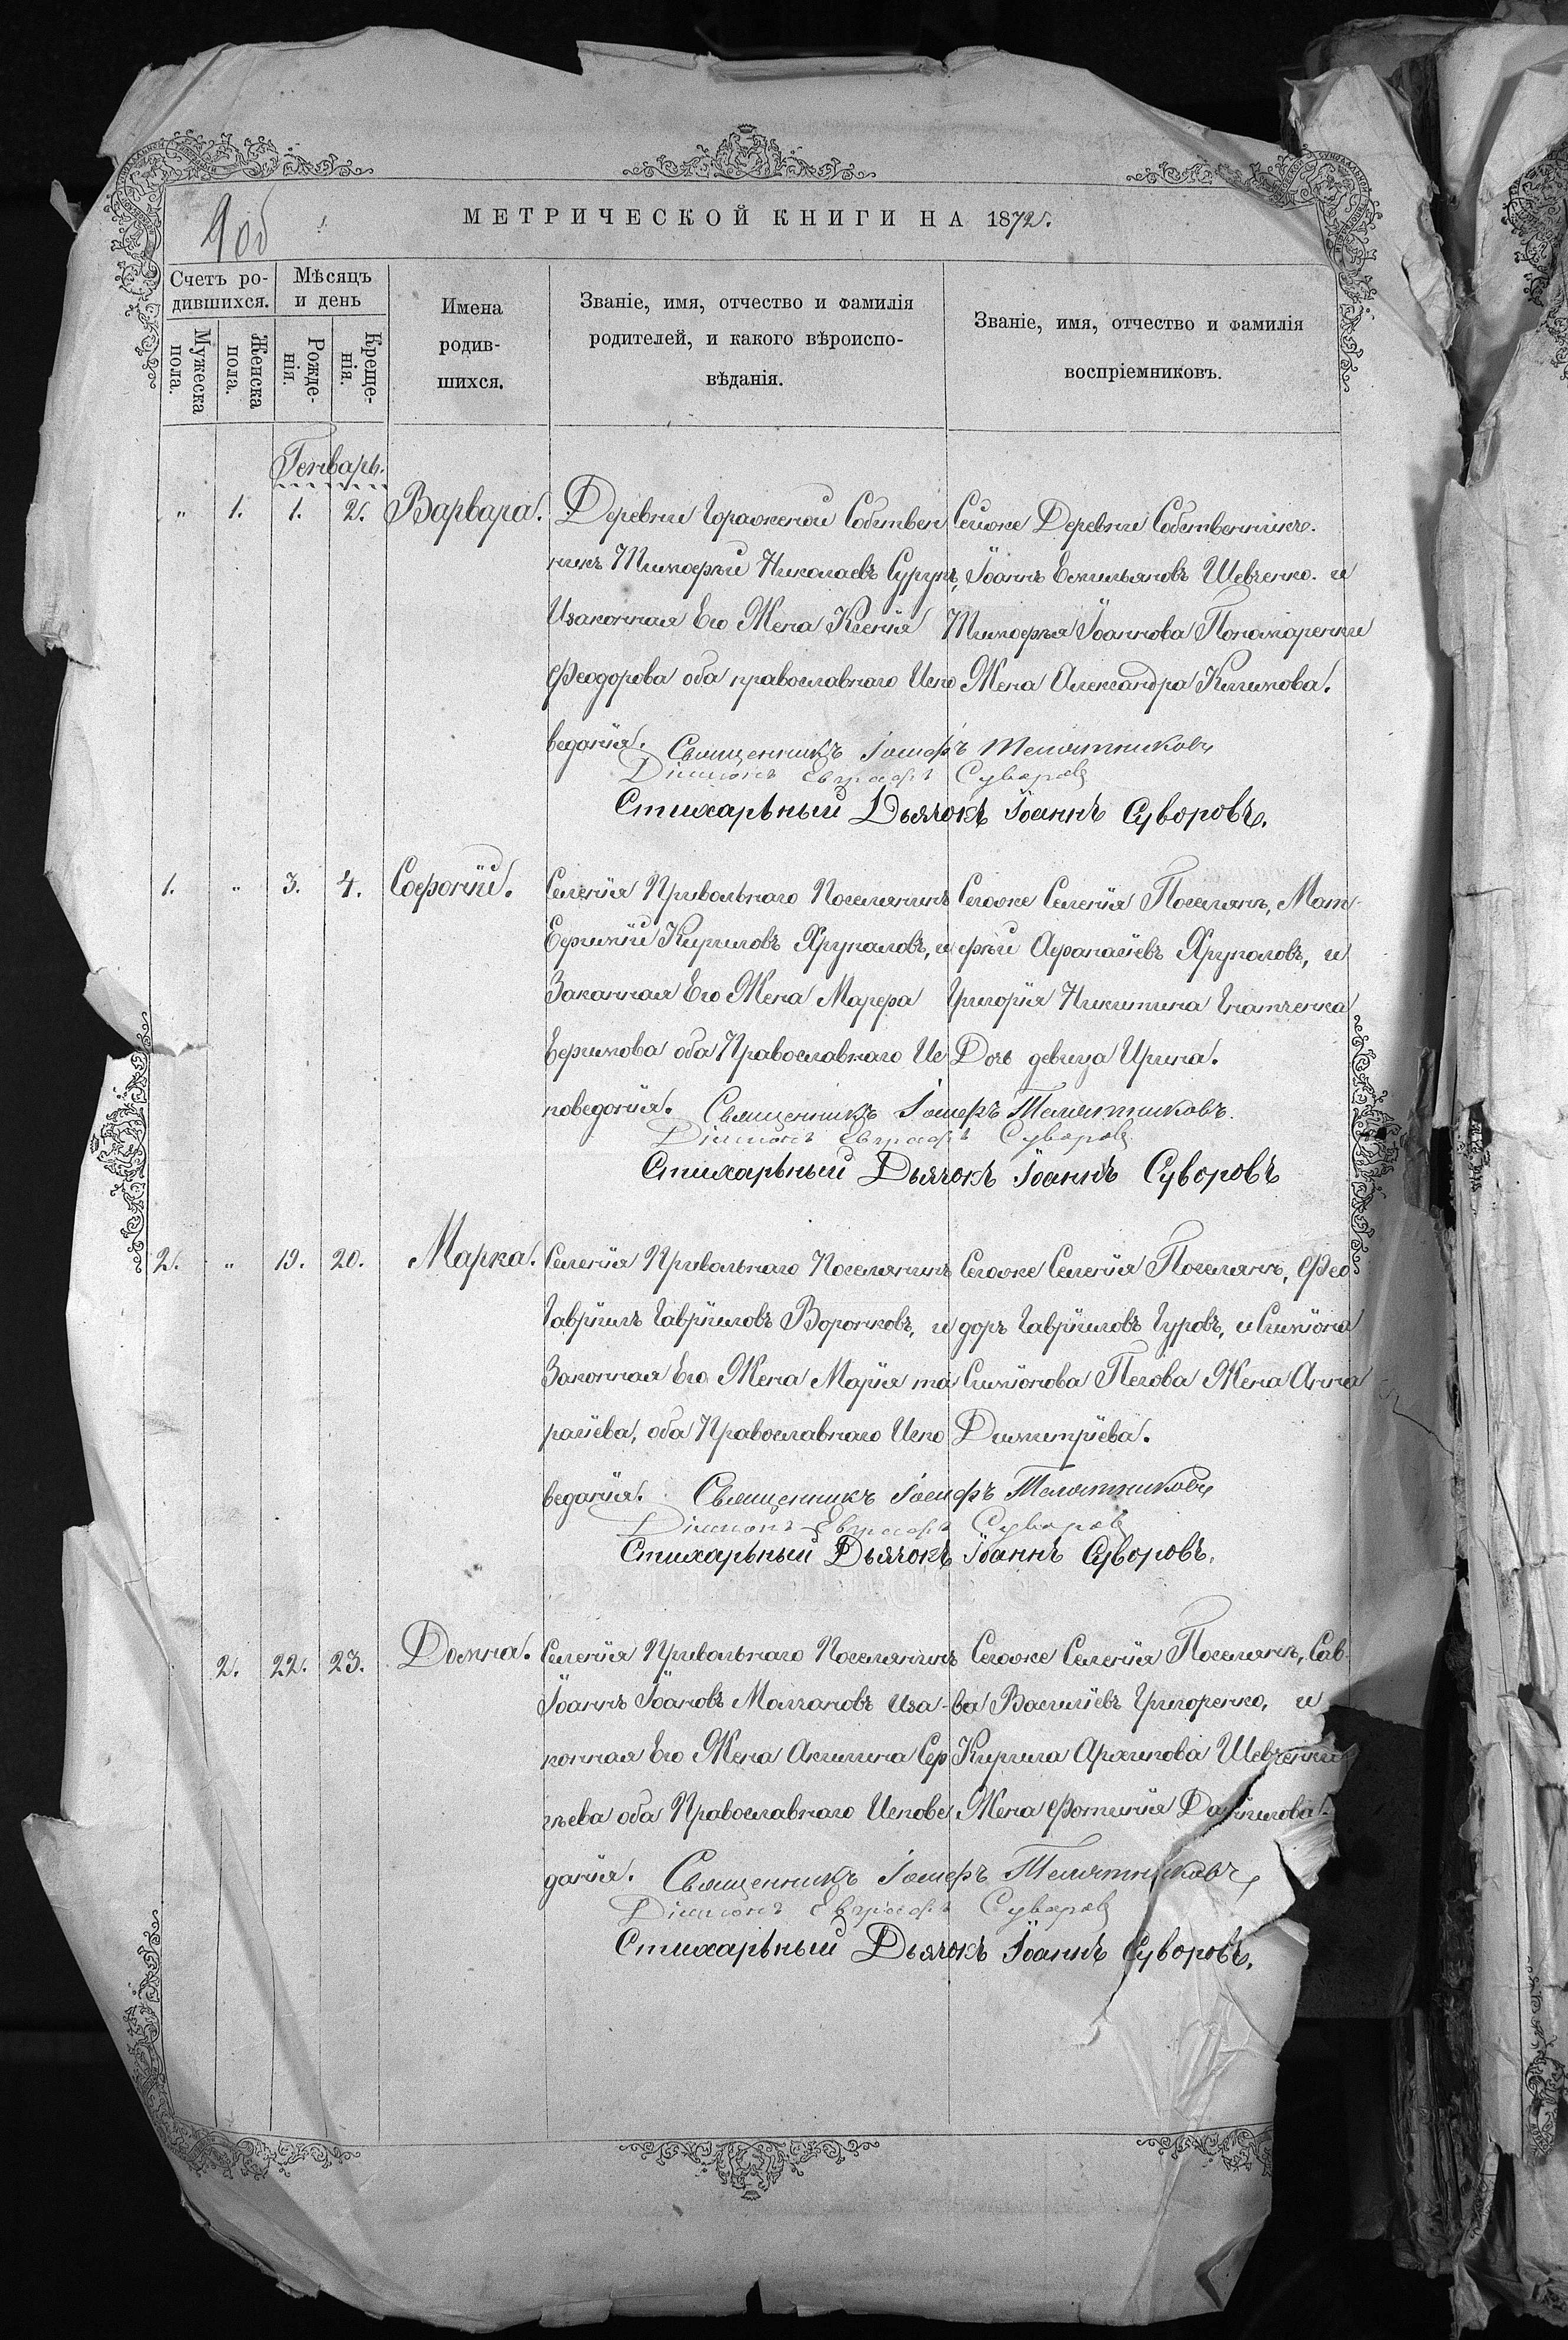 9 об
МЕТРИЧЕСКОЙ КНИГИ НА 1872.
Счетъ ро-
дившихся.
Мѣсяцъ
и день
Мужеска
пола.
Женска
пола.
Рожде-
нія.
Креще-
нія.
Имена
родив-
шихся.
Званіе, имя, отчество и фамилія
родителей, и какого вѣроиспо-
вѣданія.
Званіе, имя, отчество и фамилія
воспріемниковъ.
Генварь.
" 1. 1. 2. Варвара.
Деревни Гороженой Собствен
никъ Тимофѣй Николаевъ Сурунъ,
Изаконная Его Жена Ксенія
Феодорова оба православнаго Испо
веданія.
Сейже Деревни Собственникъ.
Іоаннъ Емильяновъ Шевченко. и
Тимофѣя Іоаннова Понамаренки
Жена Александра Климова.
Священникъ Іосифъ Телятниковъ
Діаконъ Евграфъ Суворовъ
Стихарьный Дьячокъ Іоаннъ Суворовъ.
1. " 3. 4. Софоній.
Селенія Привольнаго Поселянинъ
Ефимій Кириловъ Хрупаловъ, и
Законная Его Жена Марфа
Ефимова оба Православнаго Ис
поведанія.
Сегоже Селенія Поселян, Мат-
фѣй Афанасіевъ Хрупаловъ, и
Григорія Никитина Игнатченка
Дочь девица Ирина.
Священникъ Іосифъ Телятниковъ.
Діаконъ Евграфъ Суворовъ
Стихарьный Дьячокъ Іоаннъ Суворовъ
2. " 19. 20. Марка.
Селенія Привольнаго Поселянинъ
Гавріилъ Гавріиловъ Воронковъ, и
Законная Его Жена Марія та
расіева, оба Православнаго Испо
веданія.
Сегоже Селенія Поселян, Фео
доръ Гавріиловъ Гуровъ, и Симіона
Симіонова Пегова Жена Анна
Димитріева.
Священникъ Іосифъ Телятниковъ
Діаконъ Евграфъ Суворовъ
Стихарьный Дьячокъ Іоаннъ Суворовъ.
2. 22. 23. Домна.
Селенія Привольнаго Поселянинъ
Іоаннъ Іоановъ Молчановъ иза-
конная Его Жена Акилина Сер
гѣева оба Православнаго Испове
данія.
Сегоже Селенія Поселян, Сав-
ва Василіевъ Григоренко, и
Кирила Архипова Шевченки
Жена Фотинія Даніилова.
Священникъ Іосифъ Телятниковъ
Діаконъ Евграфъ Суворовъ
Стихарьный Дьячокъ Іоаннъ Суворовъ.